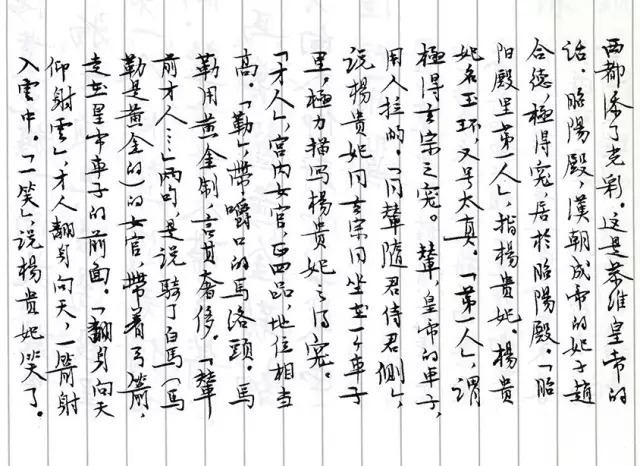 西都添了光彩。这是恭维皇帝的
话。昭陽殿,漢朝成帝的妃子趙
合德,極得寵,居於昭陽殿。「昭
阳殿里第一人」,指楊貴妃。楊貴
妃名玉环,又号太真。「第一人」,谓
極得玄宗之寵。輦,皇帝的車子,
用人拉的。「同輦隨君侍君側」,
说楊贵妃同玄宗同坐在一个車子
里,極力描写楊贵妃之得宠。
「才人」,宫内女官,正四品,地位相当
高。「勒」,带嚼口的馬洛頭。馬
勒用黄金制,言其奢侈。「輦
前才人……」两句,是说騎了白馬(馬
勒是黄金的)的女官,带着弓箭,
走在皇帝車子的前面。「翻身向天
仰射雲」,才人翻身向天,一箭射
入雲中。「一笑」,说楊贵妃笑了。